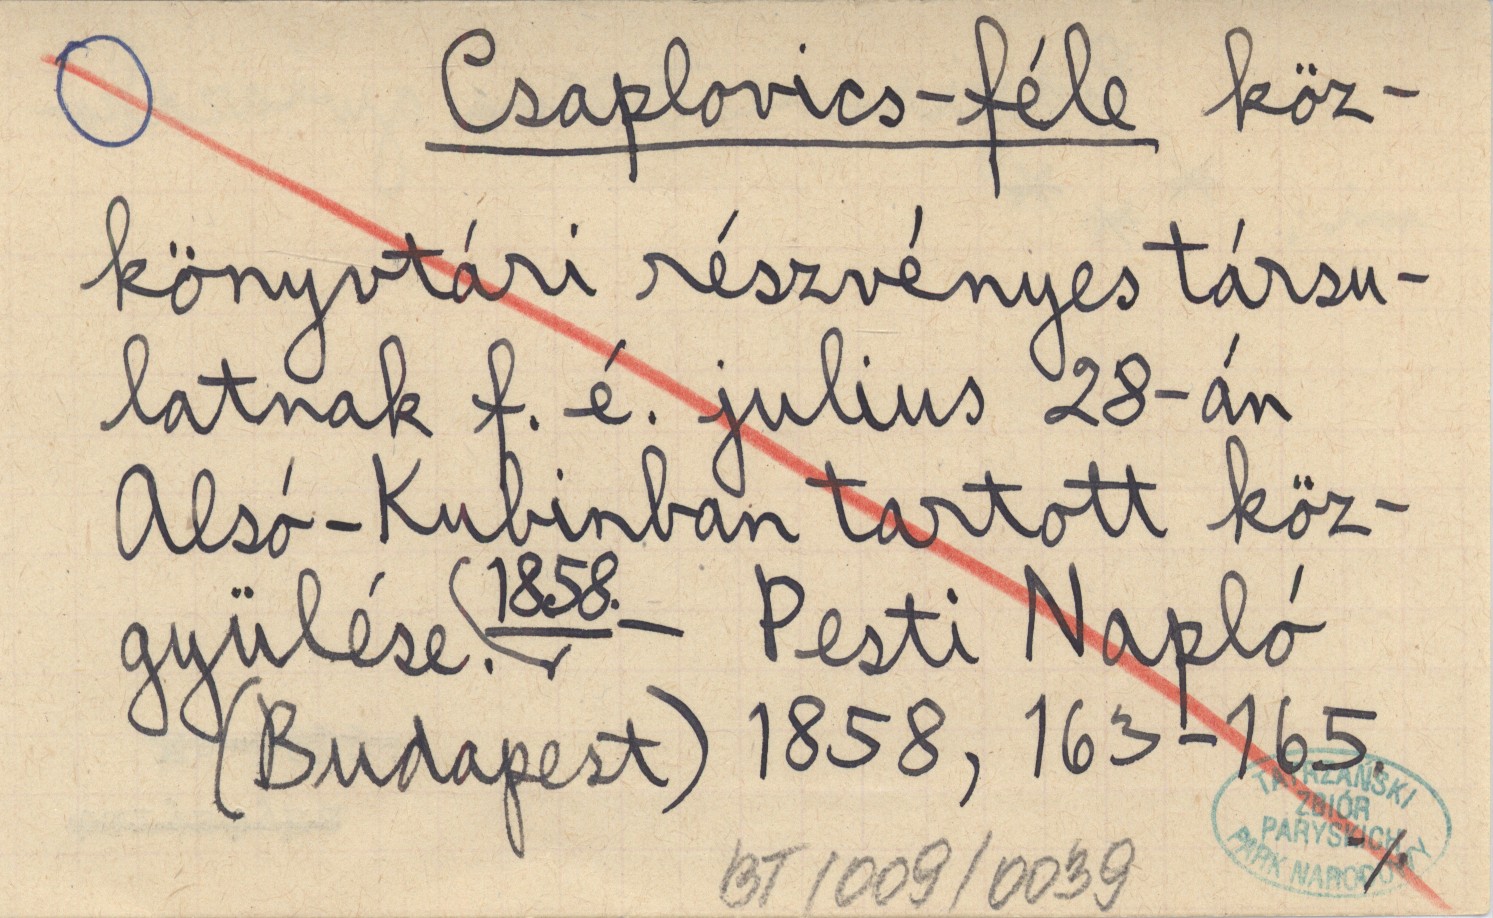 Csaplovics-féle köz-
könyvtári részvényes társu-
latnak f. é. julius 28-án
Alsó-Kubinban tartott köz-
gyülése. 1858. — Pesti Napló
(Budapest) 1858, 163-165.
TATRZAŃSKI
ZBIÓR
PARYSKICH
PARK NARODOWY
-/.
BT/009/0039